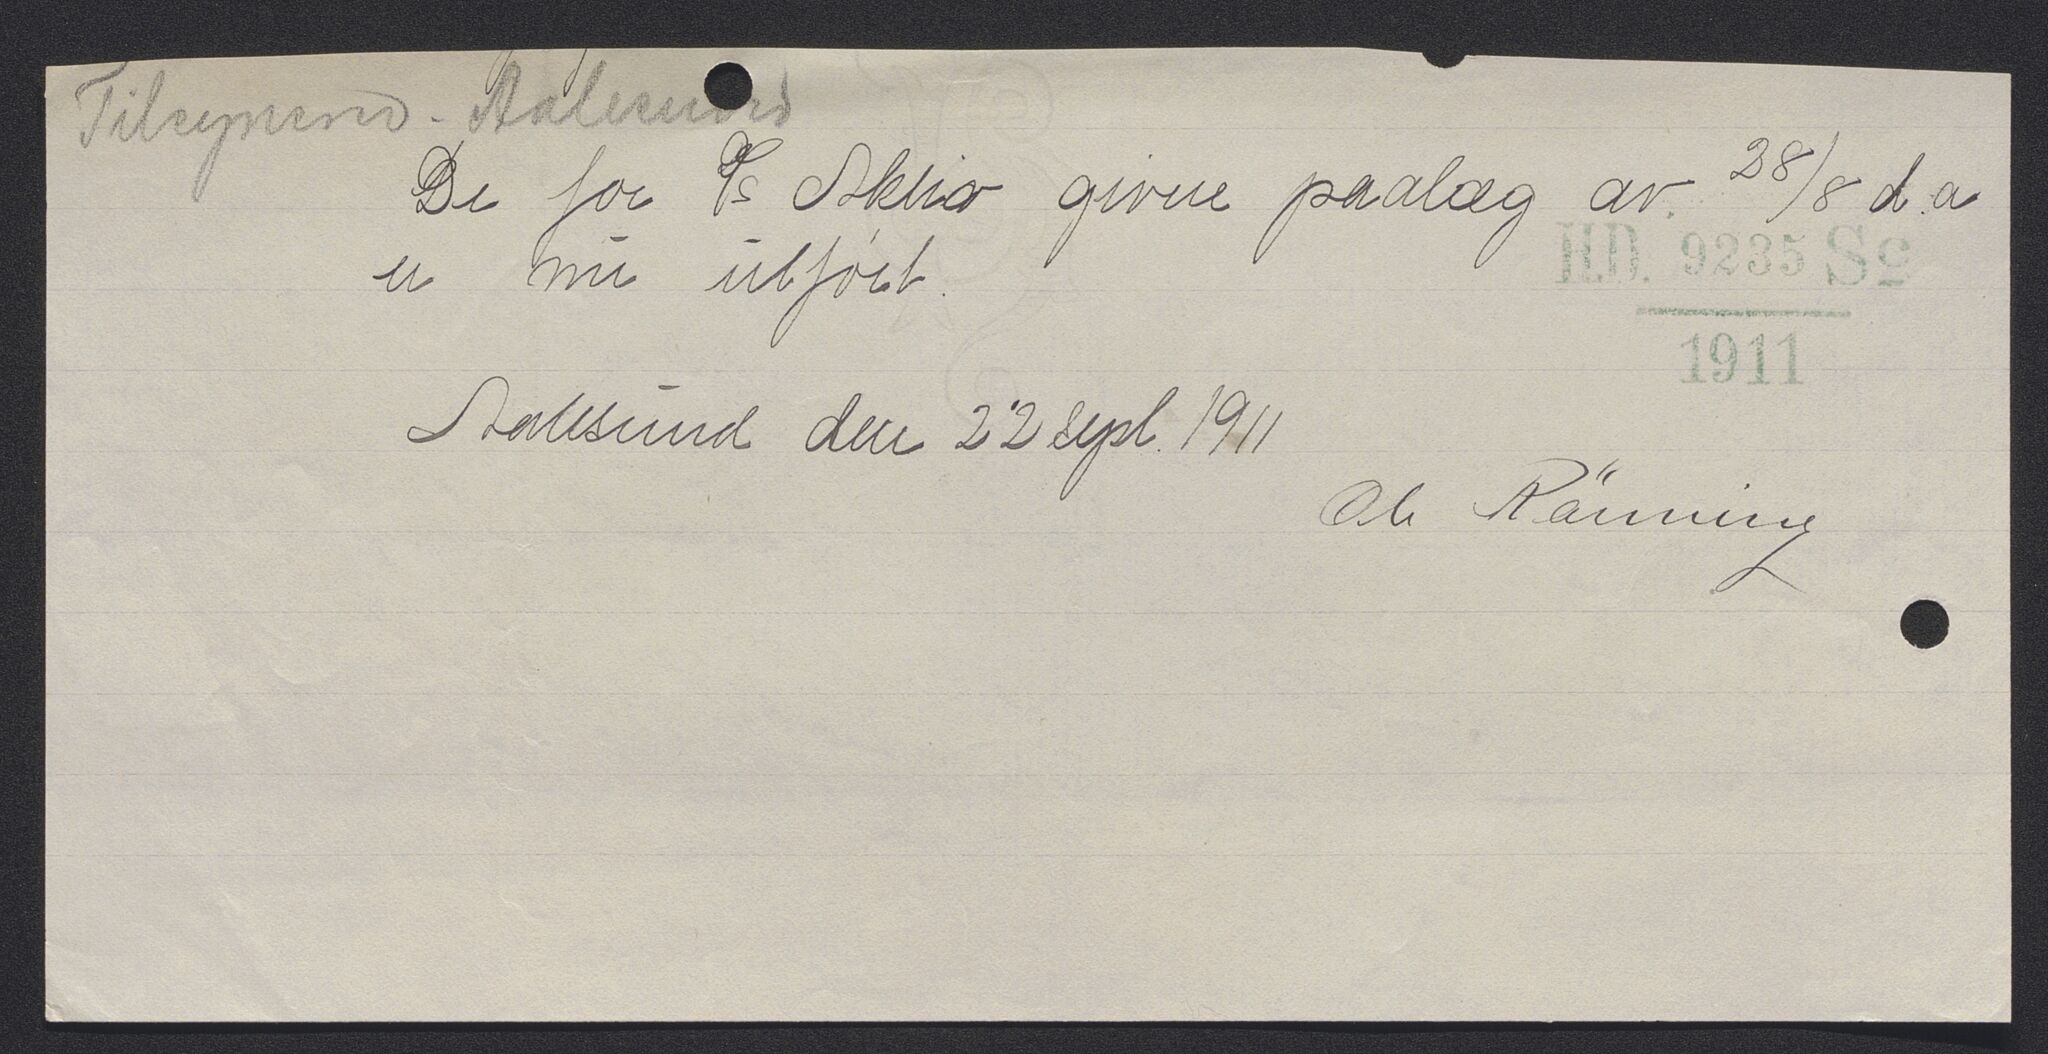 Tilsynsmd. Aalesund
De for D/S Aktiv givne paalæg av 28/8 d.a
er nu utført.
H.D. 9235 Sc
1911
Aalesund den 22 sept. 1911
Ole Rönning